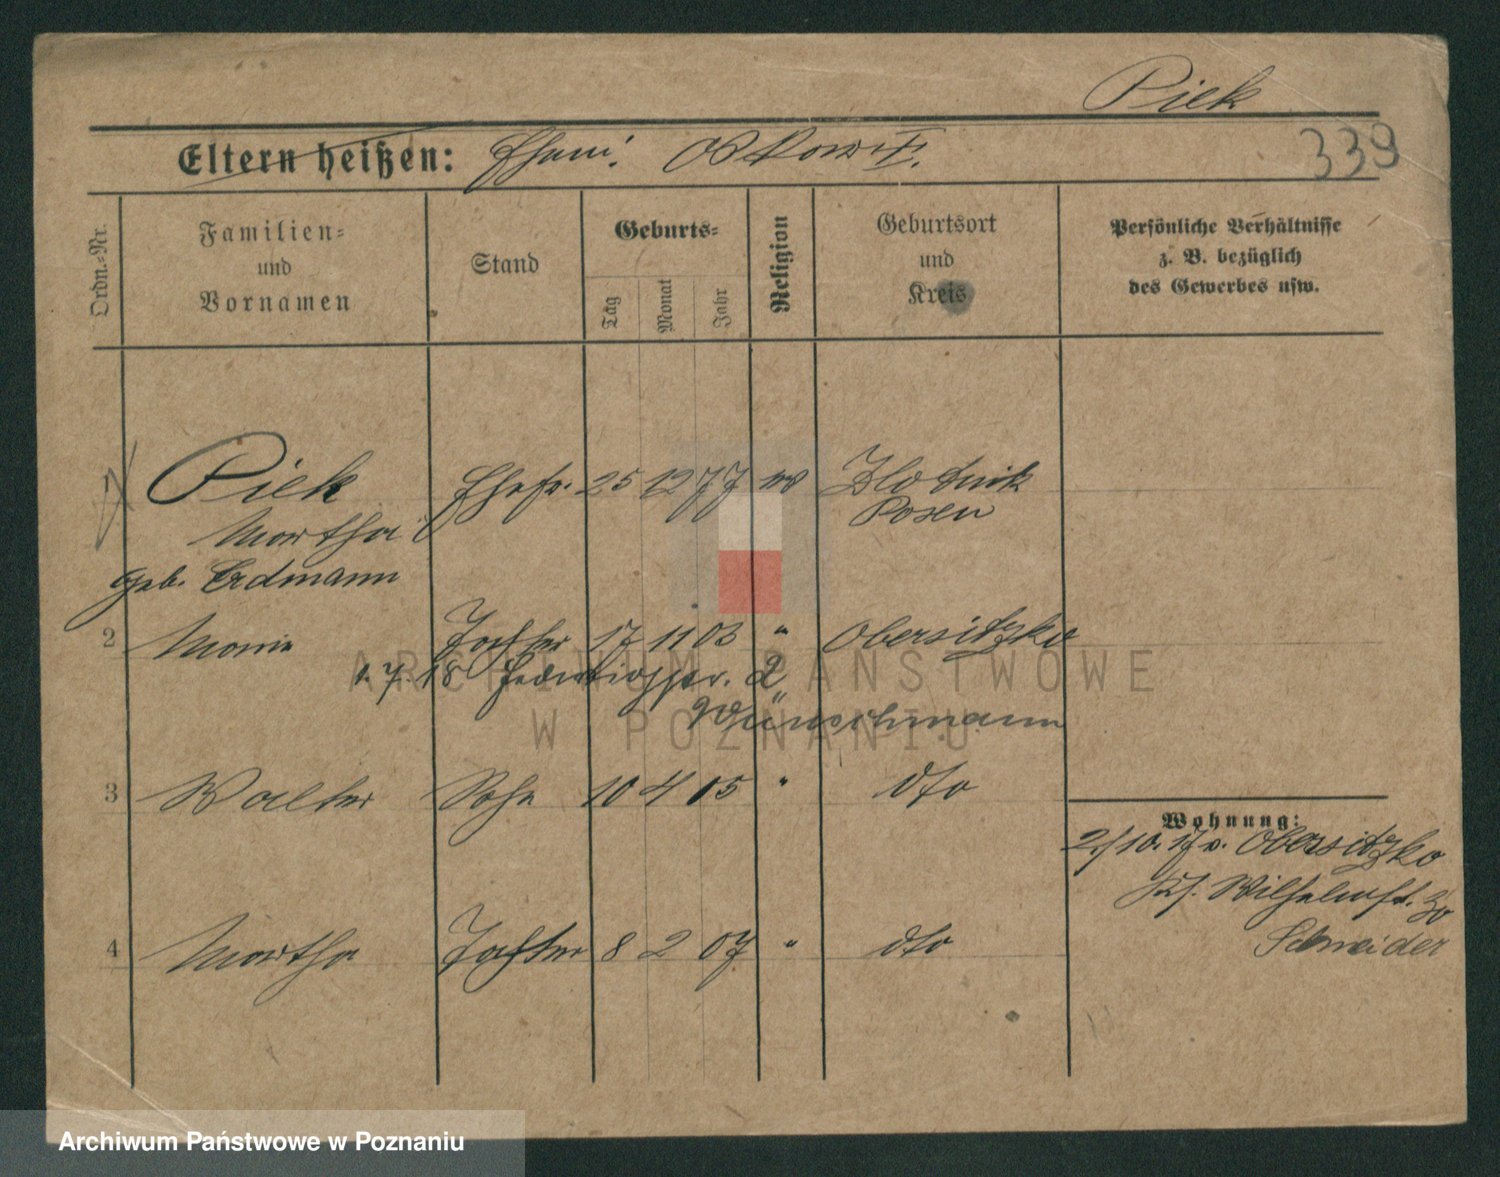 Piek
339
Eltern heißen:
Ordn.-Nr.
Familien-
und
Vornamen
Stand
Geburts-
Tag
Monat
Jahr
Religion
Geburtsort
und
Kreis
Persönliche Verhältnisse
z. B. bezüglich
des Gewerbes usw.
Piek Ehefr. 25 12 77 Zlotnik
Martha Posen
geb. Erdmann
2 Tochter 17 11 03 " Obersitzko
1. 7. 18
Wünschmann
3 Walter Sohn 10 4 05 " dto
Wohnung:
2/10. 17 v. Obersitzko
Wilhelmst.
Schneider
4 Martha Tochter 8 2 07 " dto
ARCHIWUM PAŃSTWOWE
W POZNANIU
Archiwum Państwowe w Poznaniu